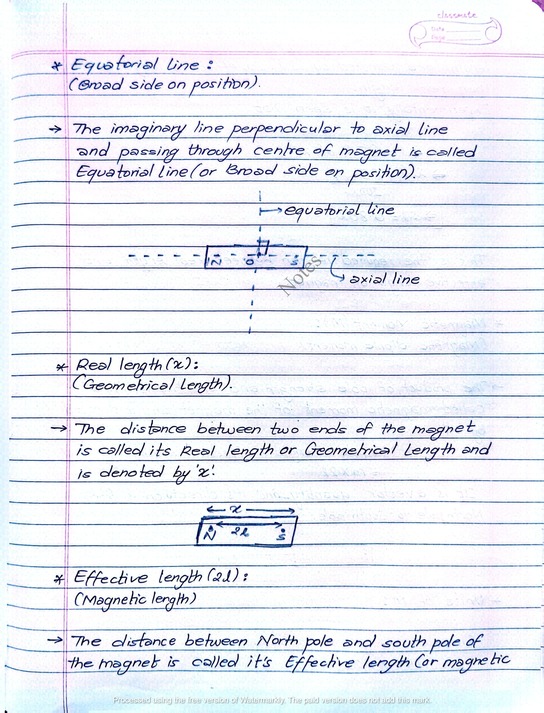 classmate
Date
Page
* Equatorial line :
(Broad side on position).
→ The imaginary line perpendicular to axial line
and passing through centre of magnet is called
Equatorial line (or Broad side on position).
→ equatorial line
N O S
Notes
axial line
* Real length (x) :
(Geometrical length).
→ The distance between two ends of the magnet
is called its Real length or Geometrical Length and
is denoted by 'x'.
x
N 2l S
* Effective length (2l) :
(Magnetic length)
→ The distance between North pole and south pole of
the magnet is called it's Effective length (or magnetic
Processed using the free version of Watermarkly. The paid version does not add this mark.